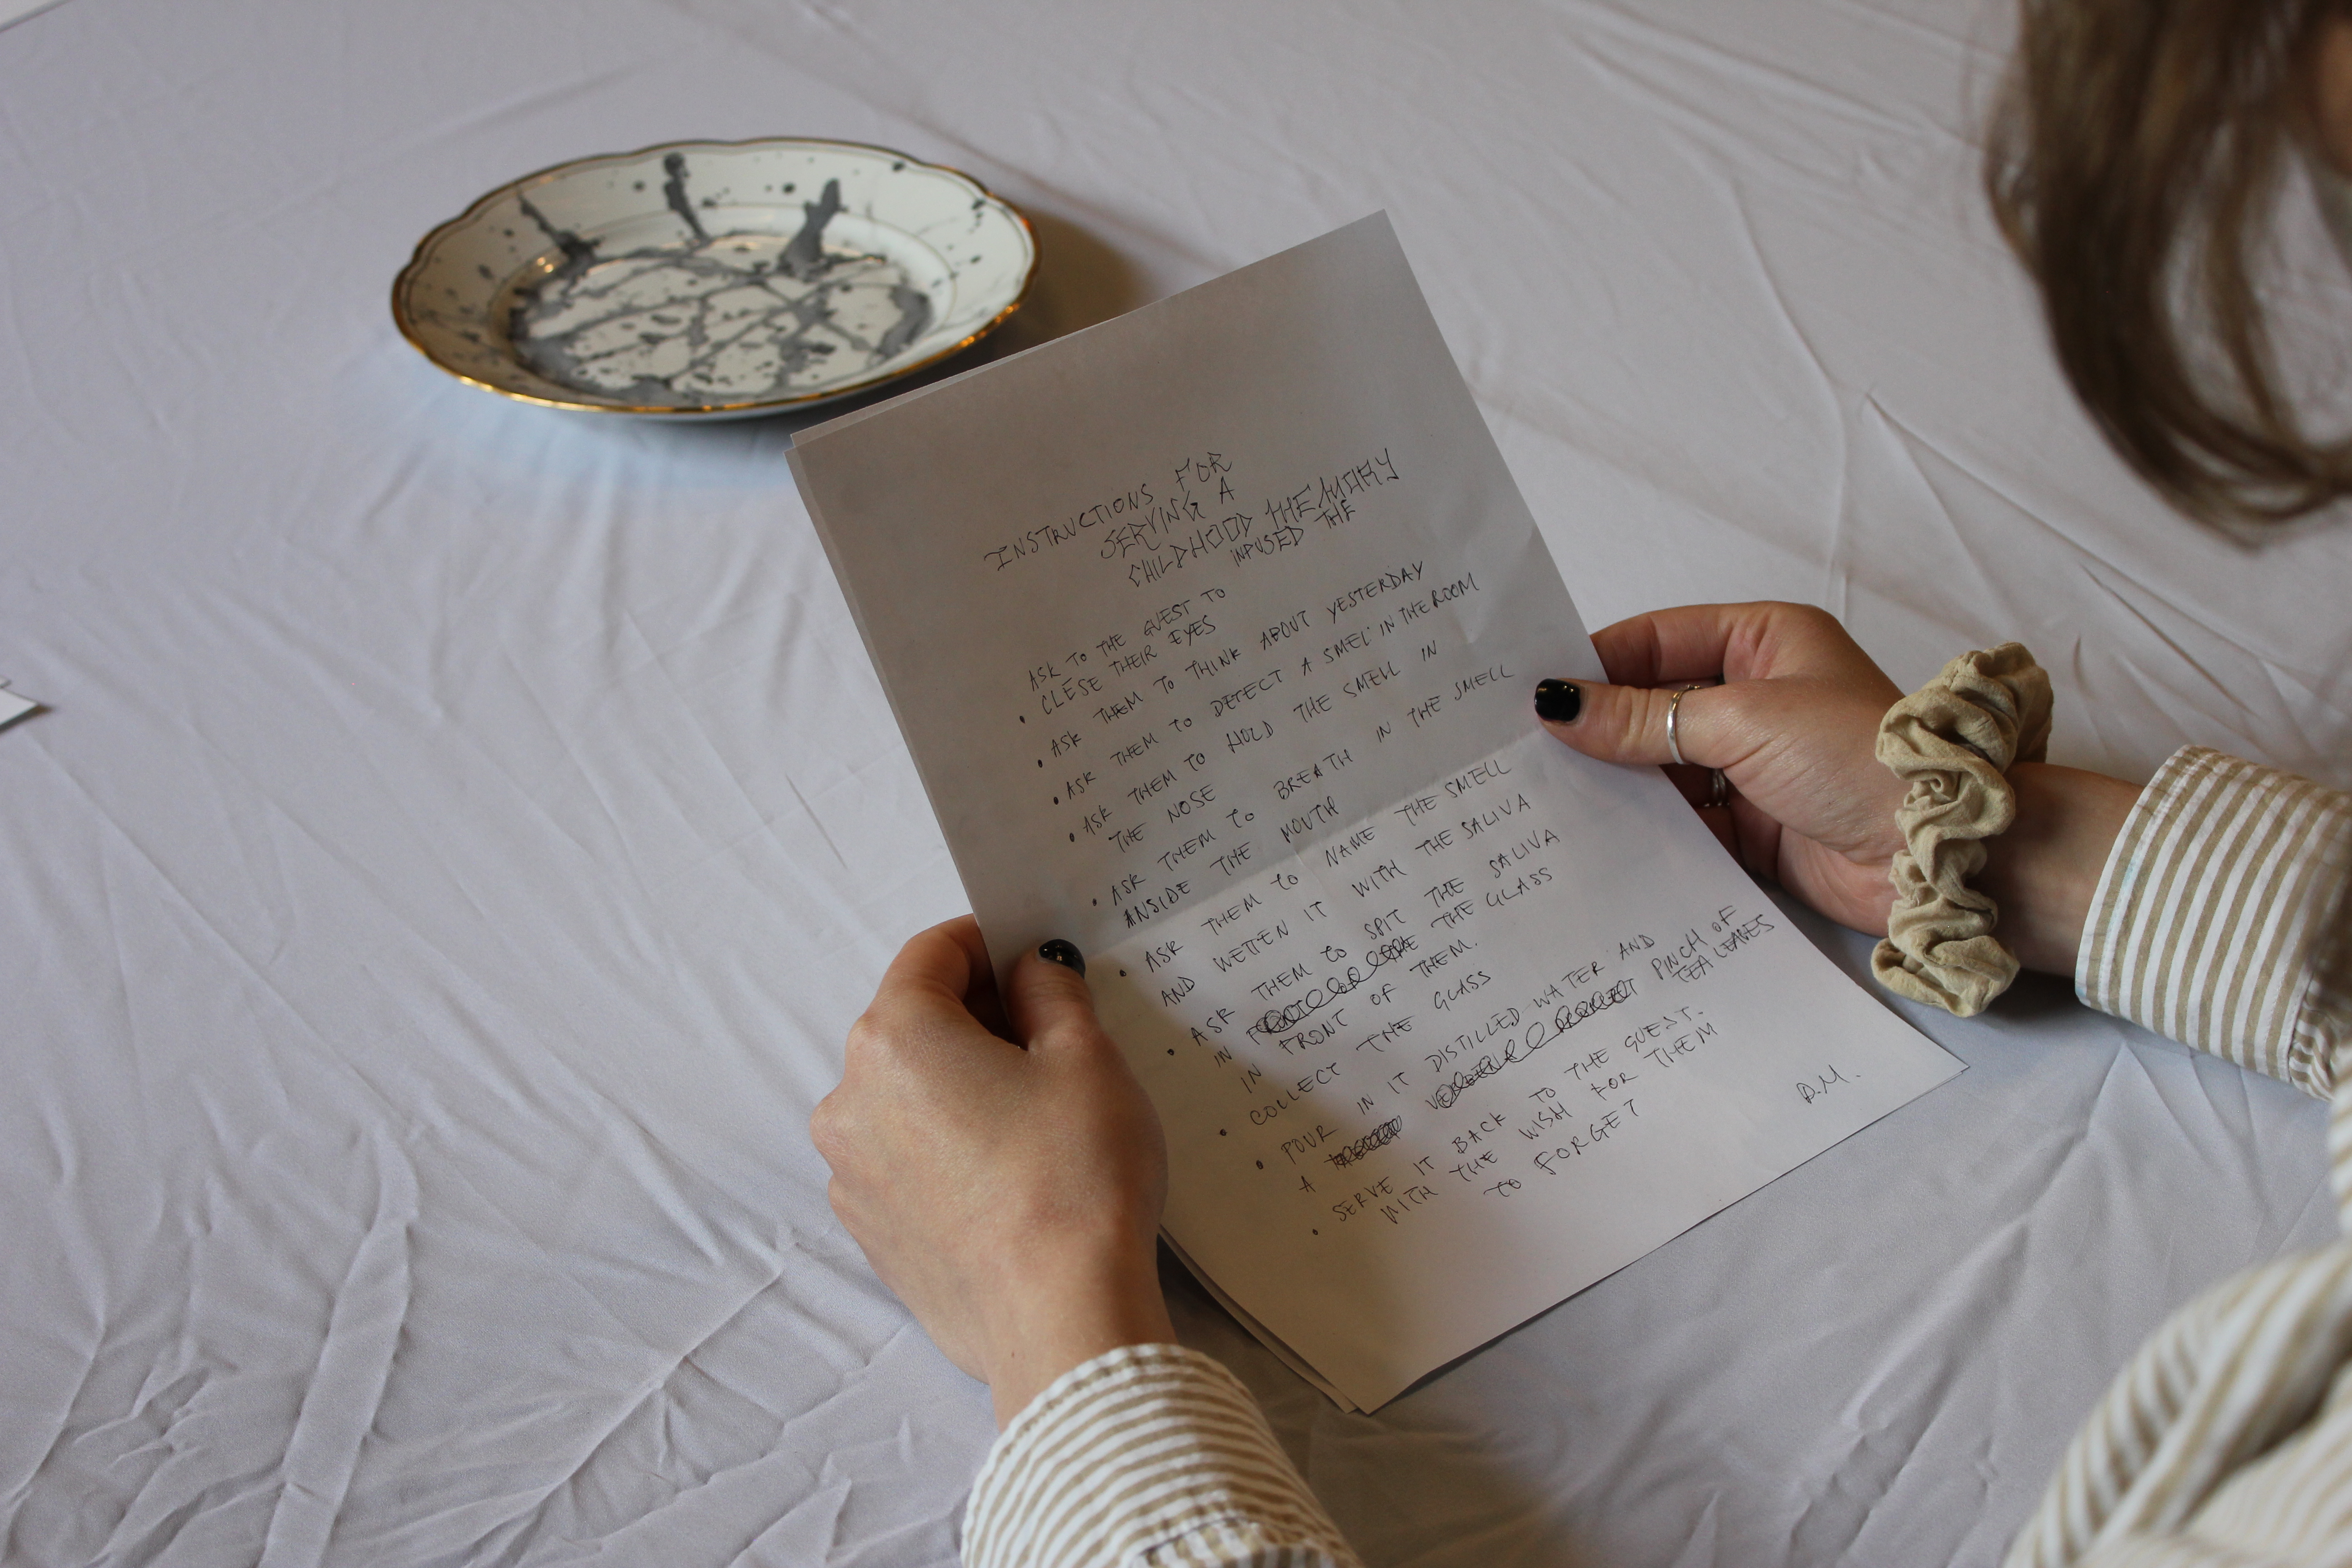 INSTRUCTIONS FOR
SERVING A
CHILDHOOD THE MEMORY
INFUSED THE
ASK TO THE GUEST TO
• CLESE THEIR EYES
• ASK THEM TO THINK ABOUT YESTERDAY
• ASK THEM TO DETECT A SMEL IN THE ROOM
• ASK THEM TO HOLD THE SMELL IN
THE NOSE
• ASK THEM TO BREATH IN THE SMELL
INSIDE THE MOUTH
• ASK THEM TO NAME THE SMELL
AND WETTEN IT WITH THE SALIVA
• ASK THEM TO SPIT THE SALIVA
IN THE GLASS
IN FRONT OF THEM.
• COLLECT THE GLASS
• POUR IN IT DISTILLED WATER AND
A PINCH OF
TEA LEAVES
• SERVE IT BACK TO THE GUEST.
WITH THE WISH FOR THEM
TO FORGET
D.M.